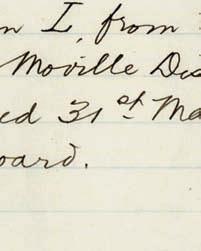 n I, from
Moville Dis
ed 31st Ma
oard.